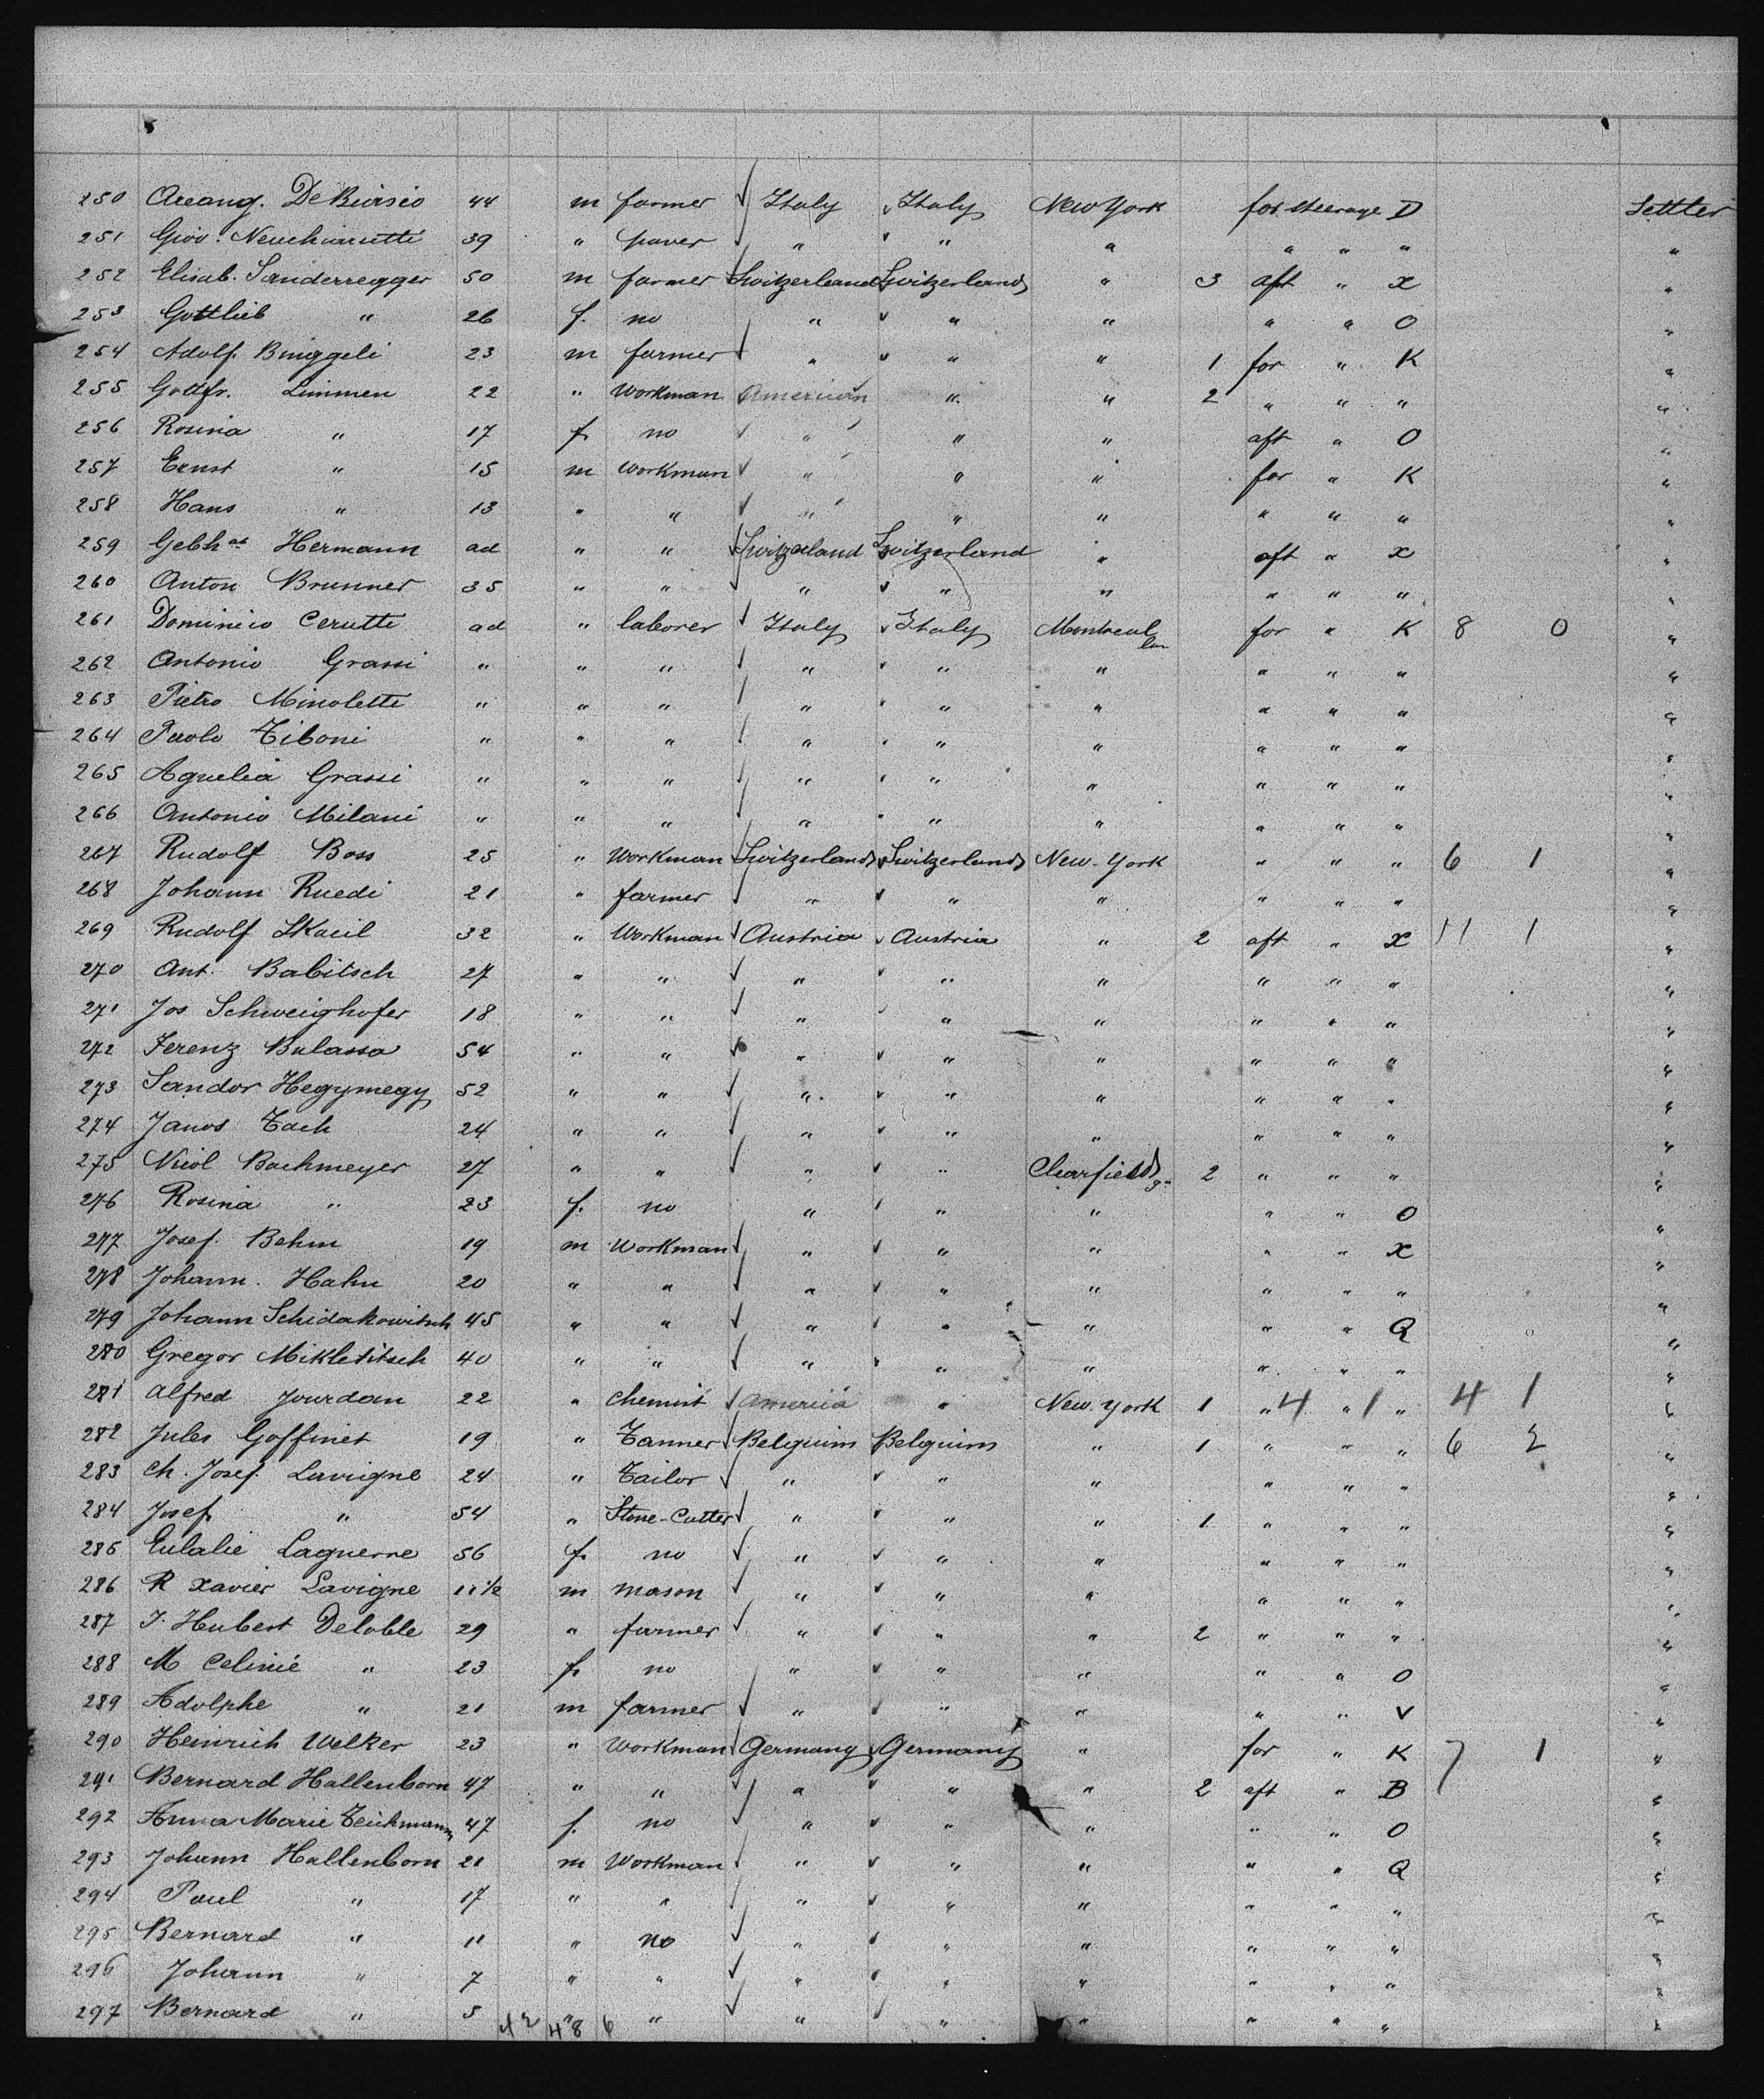 250 Arcang. De Bivisio 44 m farmer Italy Italy New York for. steerage D Settler
251 Giov. Neuchiarutti 39 " paver " " " " " " "
252 Elisab. Sanderregger 50 m farmer Switzerland Switzerland " 3 aft " X "
253 Gottlieb " 26 f. no " " " " " O "
254 Adolf. Binggeli 23 m farmer " " " 1 for " K "
255 Gottfr. Limmen 22 " Workman American " " 2 " " " "
256 Rosina " 17 f. no " " " aft " O "
257 Ernst " 15 m Workman " " " for " K "
258 Hans " 13 " " " " " " " " "
259 Gebhat Hermann ad " " Switzerland Switzerland " aft " X "
260 Anton Brunner 35 " " " " " " " " "
261 Dominico Cerutti ad " laborer Italy Italy Montreal for " K 8 0 "
262 Antonio Grassi " " " " " " " " " "
263 Pietro Minoletti " " " " " " " " " "
264 Paolo Tiboni " " " " " " " " " "
265 Aguelia Grassi " " " " " " " " " "
266 Antonio Milani " " " " " " " " " "
267 Rudolf Boss 25 " Workman Switzerland Switzerland New-York " " " 6 1 "
268 Johann Ruedi 21 " farmer " " " " " " "
269 Rudolf Skacil 32 " Workman Austria Austria " 2 aft " X 11 1 "
270 Ant. Babitsch 27 " " " " " " " " "
271 Jos Schweighofer 18 " " " " " " " " "
272 Ferenz Bulassa 54 " " " " " " " " "
273 Sandor Hegymegy 52 " " " " " " " " "
274 Janos Tach 24 " " " " " " " " "
275 Nicol Bachmeyer 27 " " " " Clearfield 2 " " " "
276 Rosina " 23 f. no " " " " " O "
277 Josef. Behm 19 m Workman " " " " " X "
278 Johann. Hahn 20 " " " " " " " " "
279 Johann Schidakowitsch 45 " " " " " " " Q "
280 Gregor Mikletitsch 40 " " " " " " " " "
281 Alfred Jourdan 22 " Chemist America " New York 1 " 4 " 1 " 4 1 "
282 Jules Goffinet 19 " Tanner Belguim Belguim " 1 " " " 6 2 "
283 Ch. Josef. Lavigne 24 " Tailor " " " " " " "
284 Josef " 54 " Stone-Cutter " " " 1 " " " "
285 Eulalie Laguerre 56 f. no " " " " " " "
286 R Xavier Lavigne 11 1/2 m mason " " " " " " "
287 J. Hubert Deloble 29 " farmer " " " 2 " " " "
288 M Celinie " 23 f. no " " " " " O "
289 Adolphe " 21 m farmer " " " " " V "
290 Heinrich Welker 23 " Workman Germany Germany " for " K 7 1 "
291 Bernard Hallenborn 47 " " " " " 2 aft " B "
292 Anna Marie Teichmann 47 f. no " " " " " O "
293 Johann Hallenborn 21 m Workman " " " " " Q "
294 Paul " 17 " " " " " " " " "
295 Bernard " 11 " no " " " " " " "
296 Johann " 7 " " " " " " " " "
297 Bernard " 5 " " " " " " " " "
42 48 6